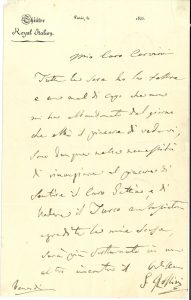 Théâtre
Royal Italien.
Paris, le 182
Mio Caro
Tutta la sera ho la tosse
e un mal di capo che non
mi ha abbandonato dal giorno
che ebbi il piacere di vedervi,
sono dunque nella necessità
di rinunziare al piacere di
sentire il Caro e di
vedere il Turco
aggradite le mie scuse,
sarò più fortunato in un
altro incontro il
G Rossini
Venerdì